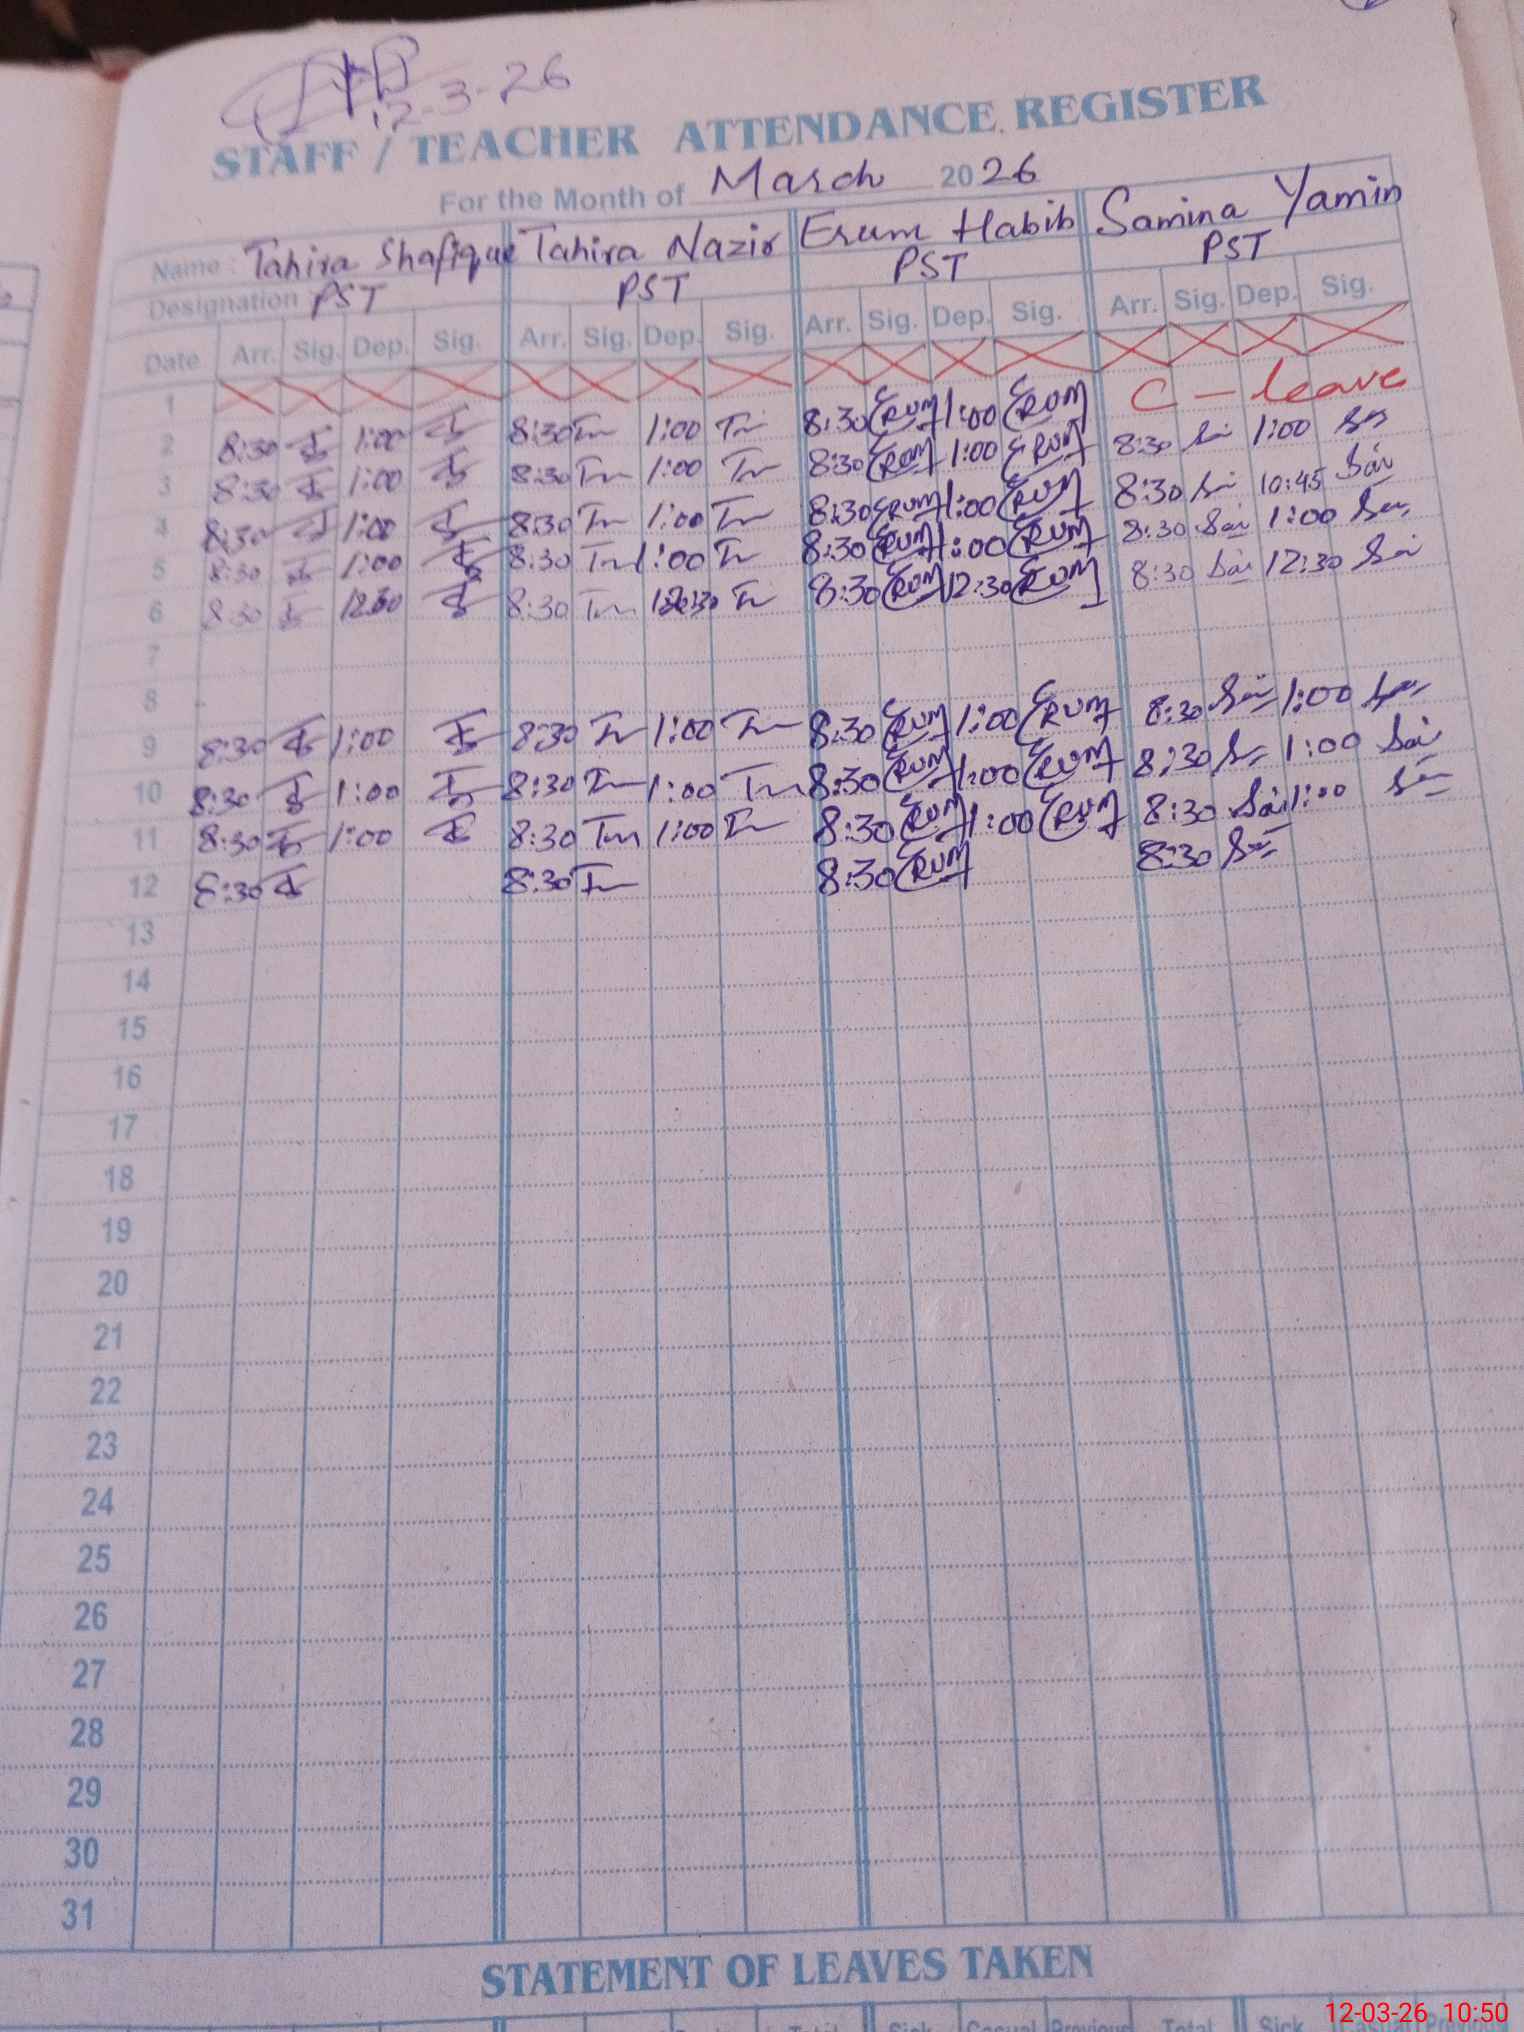 12-3-26
STAFF / TEACHER ATTENDANCE REGISTER
For the Month of March 2026
Name: Tahira Shafique Tahira Nazir Erum Habib Samina Yamin
Designation PST PST PST PST
Date Arr. Sig. Dep. Sig. Arr. Sig. Dep. Sig. Arr. Sig. Dep. Sig. Arr. Sig. Dep. Sig.
1
2 8:30 1:00 8:30 Tn 1:00 Tn 8:30 ERUM 1:00 ERUM C - leave
3 8:30 1:00 8:30 Tn 1:00 Tn 8:30 ERUM 1:00 ERUM 8:30 1:00
4 8:30 1:00 8:30 Tn 1:00 Tn 8:30 ERUM 1:00 ERUM 8:30 10:45
5 8:30 1:00 8:30 Tn 1:00 Tn 8:30 ERUM 1:00 ERUM 8:30 1:00
6 8:30 8:30 Tn Tn 8:30 ERUM 12:30 ERUM 8:30 12:30
7
8
9 8:30 1:00 8:30 Tn 1:00 Tn 8:30 ERUM 1:00 ERUM 8:30 1:00
10 8:30 1:00 8:30 Tn 1:00 Tn 8:30 ERUM 1:00 ERUM 8:30 1:00
11 8:30 1:00 8:30 Tn 1:00 Tn 8:30 ERUM 1:00 ERUM 8:30 1:00
12 8:30 8:30 Tn 8:30 ERUM 8:30
13
14
15
16
17
18
19
20
21
22
23
24
25
26
27
28
29
30
31
STATEMENT OF LEAVES TAKEN
Total Sick Casual Previous Total Sick Casual Previous
12-03-26 10:50